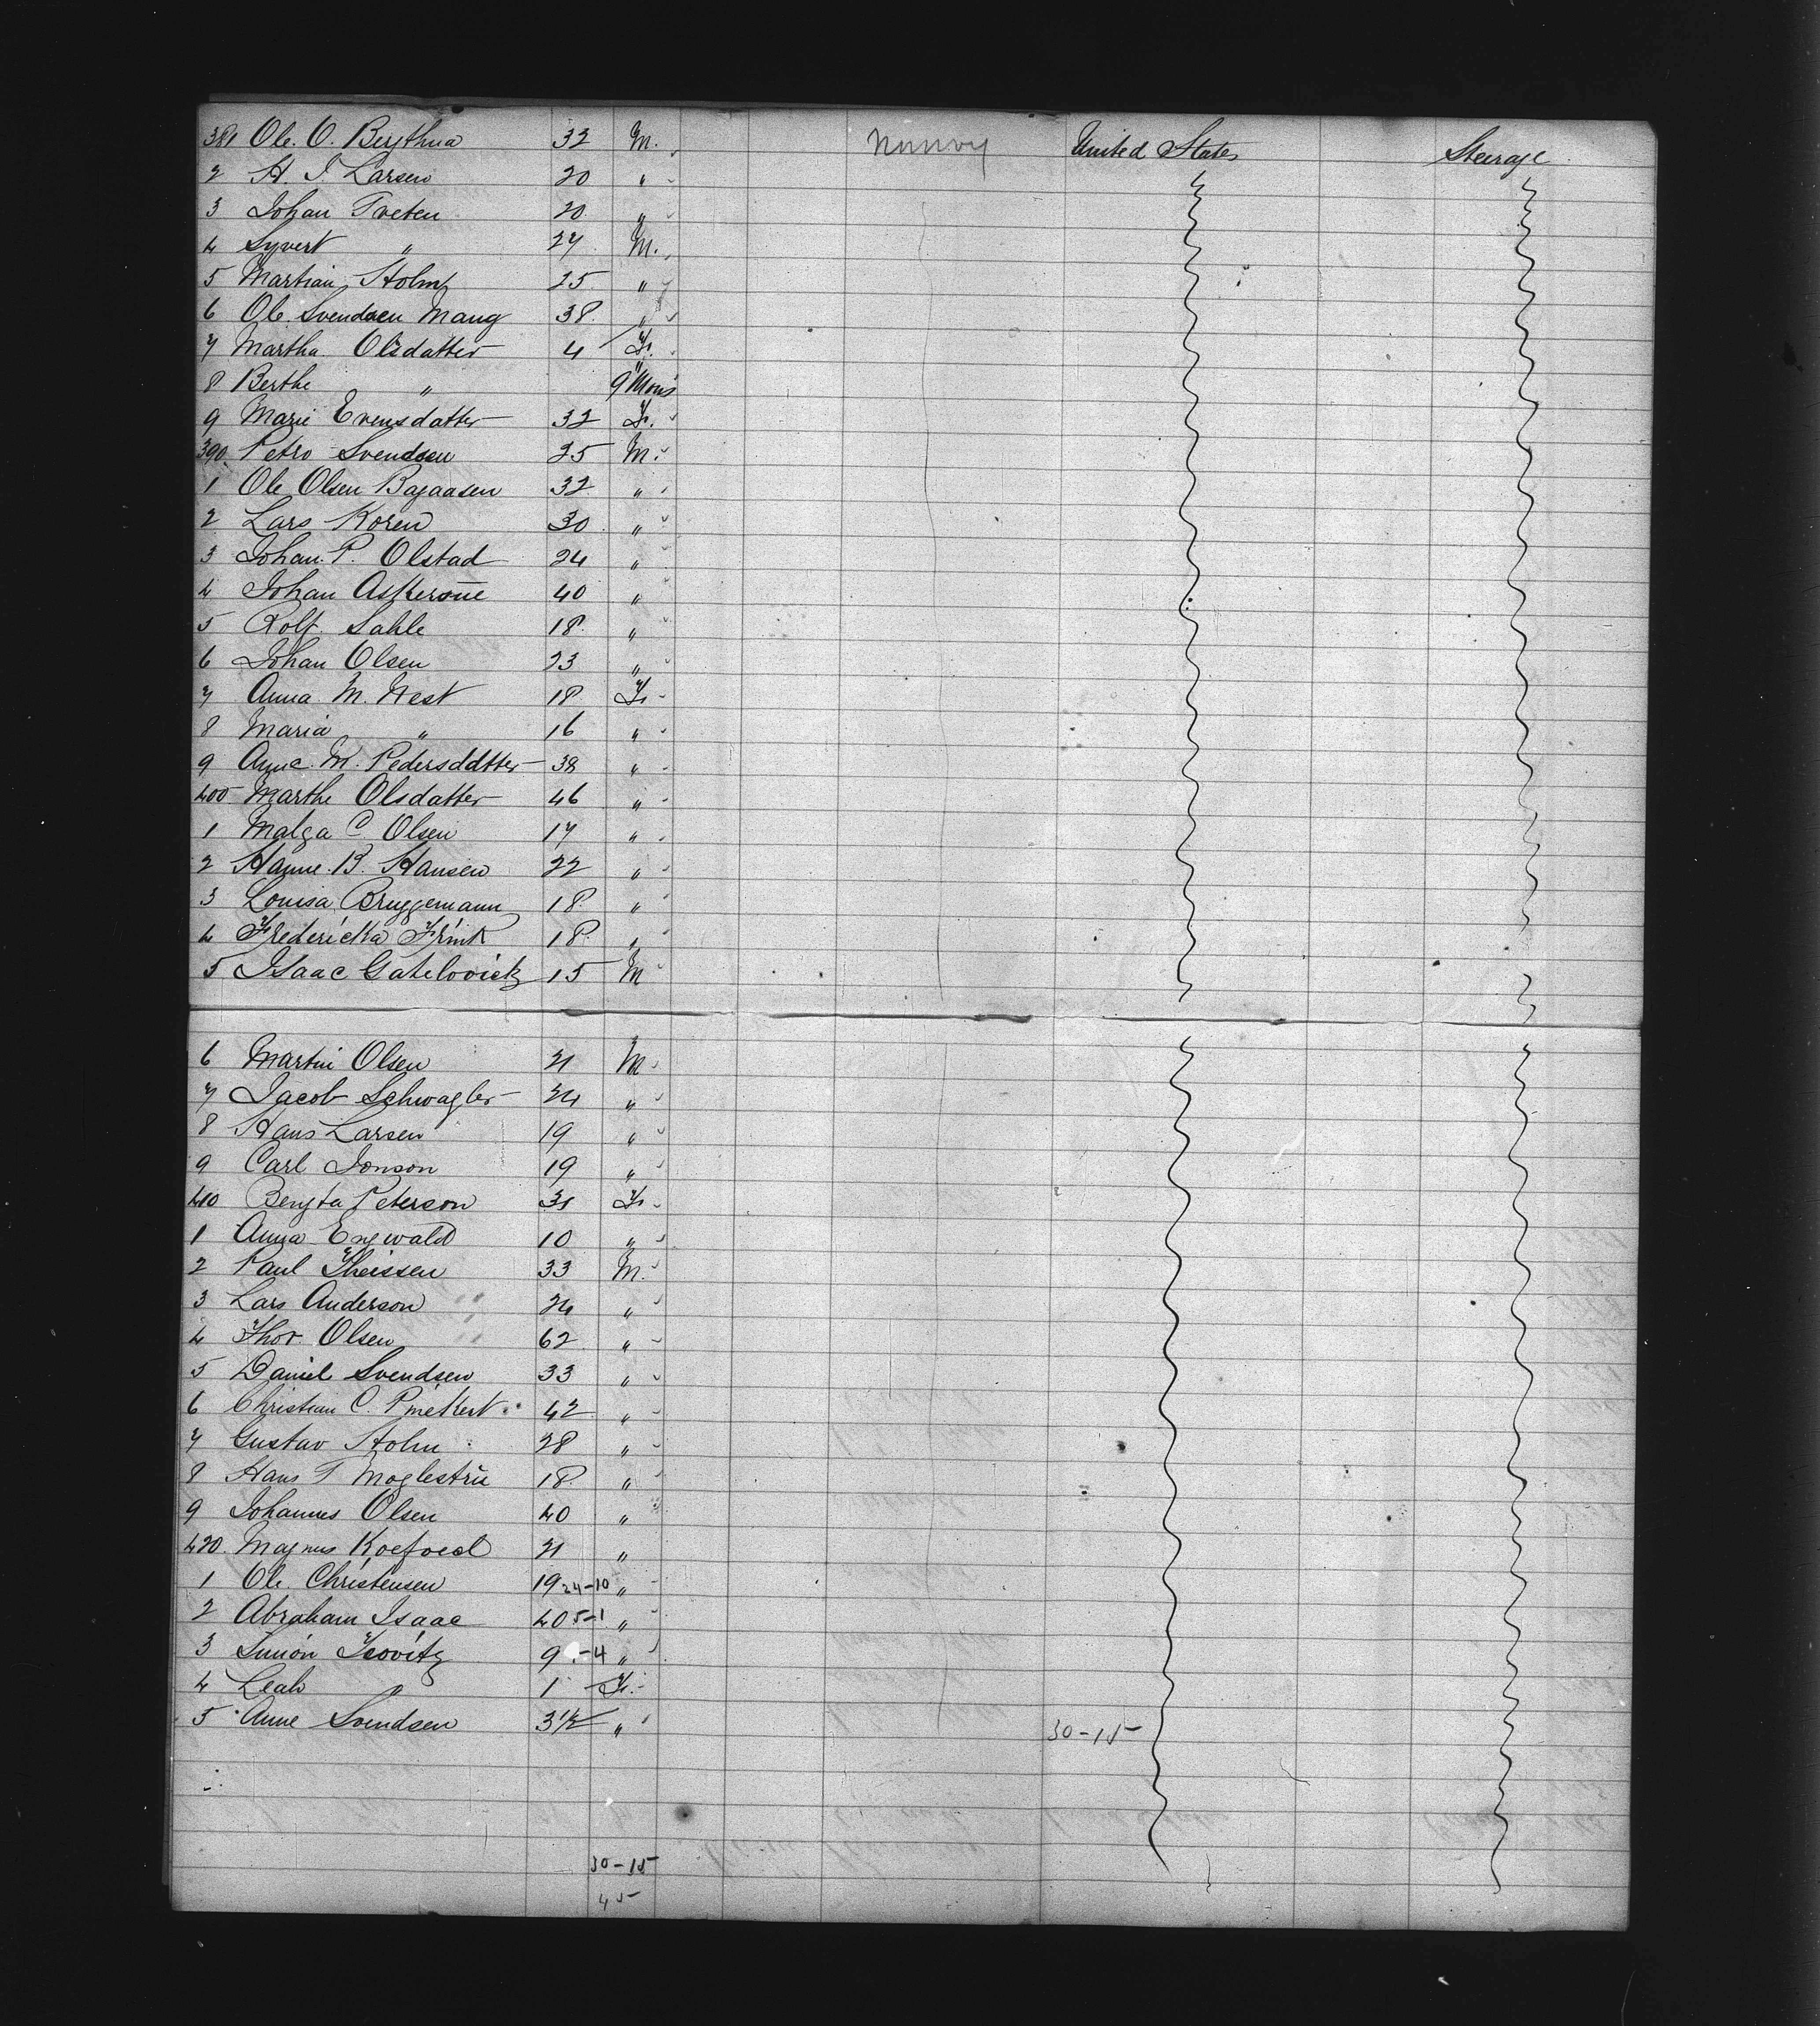 381 Ole. O. Berthua 32 M. Norway United States Steerage
2 H. J. Larsen 20 "
3 Johan Tveten 20 "
4 Syvert " 27 M.
5 Martian Holm 25 "
6 Ole Svendsen Maug 38 "
7 Martha Olsdatter 4 F.
8 Berthe " 9 Mons "
9 Marie Evensdatter 32 F.
390 Petro Svendsen 25 M.
1 Ole Olsen Bagaasen 32 "
2 Lars Koren 30 "
3 Johan. P. Olstad 24 "
4 Johan 40 "
5 Rolf Sahle 18 "
6 Johan Olsen 23 "
7 Anna M. West 18 F.
8 Maria " 16 "
9 Anne. M. Pedersddtter 38 "
400 Marthe Olsdatter 46 "
1 Malga C. Olsen 17 "
2 Hanne. B. Hansen 22 "
3 Louisa Bruggemann 18 "
4 Fredericka Frink 18 "
5 Isaac Gatelovick 15 M
6 Martin Olsen 21 M
7 Jacob Schwagler 24 "
8 Hans Larsen 19 "
9 Carl Jonson 19 "
410 Bengta Peterson 31 F.
1 Anna Engwald 10 "
2 Paul Theissen 33 M.
3 Lars Anderson 24 "
4 Thor Olsen 62 "
5 Daniel Svendsen 33 "
6 Christian C. 42 "
7 Gustav Holm 28 "
8 Hans T Moglestrie 18 "
9 Johannes Olsen 40 "
420 Magnus Koefoed 21 "
1 Ole Christensen 19 24-10 "
2 Abraham Isaac 40 5-1 "
3 Simon Isovitz 9 -4 "
4 Leah " 1 F.
5 Anne Svendsen 3 1/2 " 30-15
30-15
45